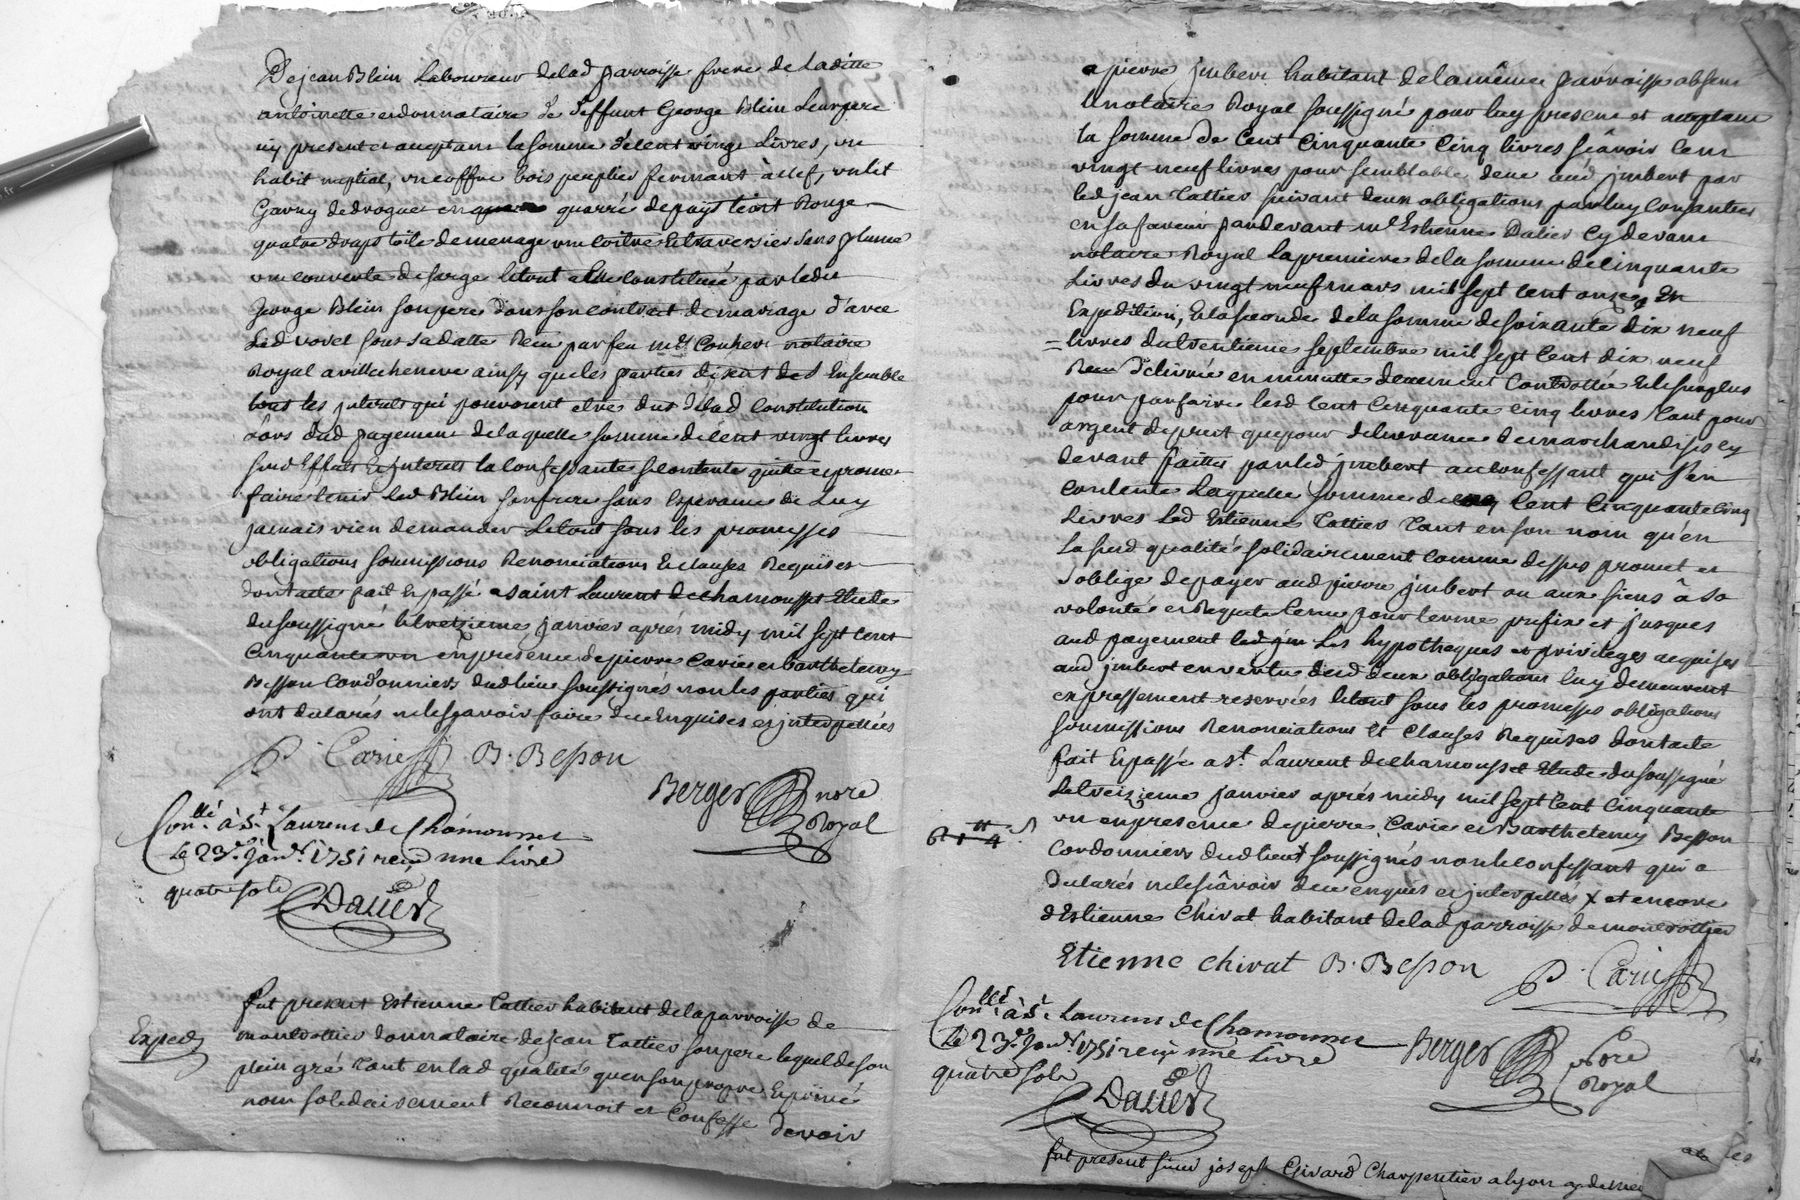 De jean Blein Laboureur delad parroisse frere de Laditte
antoinette et donnataire de deffunt George Blein Leur pere
icy present et acceptant la somme de cent vingt Livres, un
habit nuptial, un coffre bois peuplier fermant à clef, un lit
Garny de droguet en quarré de pays teint Rouge
quatre draps toile de menage une coitre et traversier sans plume
une couverte de sarge le tout a Elle constitué par ledit
George Blein son pere dans son contrat de mariage d'avec
Led voret sous sa datte Receu par feu me notaire
Royal a villecheneve ainsy que les parties disent des Ensemble
tous les jnterets qui pouvoient etre dus delad Constitution
Lors dud payement de laquelle somme de cent vingt livres
susd Effets et jnterets la confessante se contente quitte et promet
faire tenir led Blein son frere sans Esperance de Luy
jamais rien demander le tout sous les promesses
obligations soumissions Renonciations et clauses Requises
dont acte fait et passé a saint Laurent de chamousset Etude
du soussigné le treizieme janvier aprés midy mil sept cent
Cinquante un en presence de pierre Carie et barthelemy
Besson Cordonniers dud lieu soussignés non les parties qui
ont declarés ne le sçavoir faire de ce enquises et jnterpellées
P. Carie B. Besson
Berger nore
Royal
Conllé à St Laurens de Chamousset
Le 23e Janer 1751 reçu une Livre
quatre sols
Daüer
Exped
fut present Estienne Cottier habitant de la parroisse de
montrottier donnataire de jean Cottier son pere lequel de son
plein gré tant en lad qualité qu'en son propre et privé
nom solidairement Reconnoit et Confesse devoir
a pierre jmbert habitant de la même parroisse absent
le notaire Royal soussigné pour luy present et acceptant
la somme de Cent Cinquante Cinq livres sçavoir Cent
vingt neuf livres pour semblable deue aud jmbert par
led jean Cottier suivant deux obligations par luy consenties
en sa faveur pardevant me Estienne Dalier Cy devant
notaire Royal la premiere de la somme de cinquante
Livres du vingt neuf mars mil sept cent onze, En
Expedition, Et la seconde de la somme de soixante dix neuf
livres du trentieme septembre mil sept Cent dix neuf
Receu delivrée en minutte deuement Controllée Et le surplus
pour parfaire lesd Cent Cinquante cinq livres tant pour
argent de prest que pour delivrance de marchandises cy
devant faittes par led jmbert au confessant qui s'en
contente Laquelle somme de Cent Cinquante Cinq
Livres Led Estienne Cottier tant en son nom qu'en
la susd qualité solidairement comme dessus promet et
s'oblige de payer aud pierre jmbert ou aux siens à sa
volonté et Requete tenue pour terme prefix et jusques
aud payement Les hypotheques et privileges acquises
aud jmbert en vertu desd deux obligations luy demeurent
expressement reservés le tout sous les promesses obligations
soumissions Renonciations et clauses Requises dont acte
fait Et passé a St. Laurent de chamousset Etude du soussigné
Le treizieme janvier aprés midy mil sept Cent Cinquante
un en presence de pierre Carie et Barthelemy Besson
Cordonniers dud lieu soussignés non le confessant qui a
declarés ne le sçavoir de ce enquis et jnterpellés x et encore
d'Estienne Chirat habitant delad parroisse de montrottier
Etienne chirat B. Besson P. Carie
Conllé à St Laurens de Chamousset
Le 23e Janer 1751 reçu une Livre
quatre sols
Daüer
Berger Nore
Royal
fut present sieur joseph Girard Charpentier a lyon